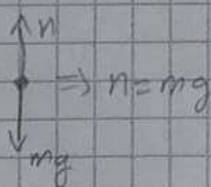 n
⇒ n = mg
mg